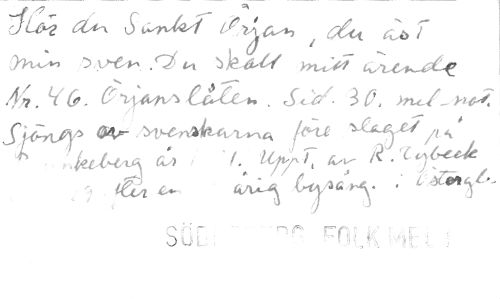 Hör du Sankt Örjan, du äst
min sven. Du skall mitt ärende
Nr. 46. Örjanslåten. Sid. 30. mel-not.
Sjöngs av svenskarna före slaget på
år Uppt. av R. Dybeck
efter en årig bysång. i Östergl.
FOLKMEL